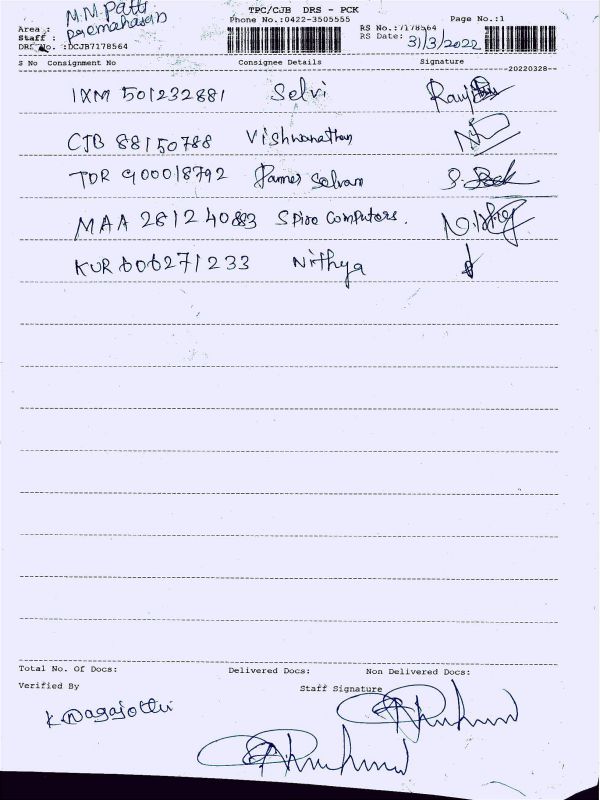 TPC/CJB DRS - PCK
Phone No.:0422-3505555 Page No.:1
Area : M.M.Patti
Staff : Premahasan
RS No.:7178564
DRS No. :DCJB7178564
RS Date: 31/3/2022
S No Consignment No Consignee Details Signature
20220328
IXM 501232881 Selvi
CJB 88150788 Vishwanathan
TDR 900018792 James Selvan
MAA 281240883 Spiro Computers.
KUR 606271233 Nithya
Total No. Of Docs: Delivered Docs: Non Delivered Docs:
Verified By Staff Signature